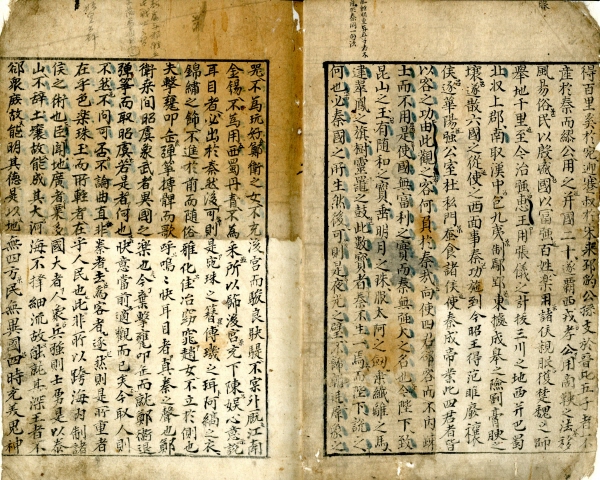 得百里奚於宛迎蹇叔於宋來邳豹公孫支於晉此五子者不
産於秦而繆公用之并國二十遂霸西戎孝公用商鞅之法移
風易俗民以殷盛國以富强百姓樂用諸侯親服獲楚魏之師
擧地千里至今治强惠王用張儀之計拔三川之地西并巴蜀
北收上郡南取漢中包九夷制鄢郢東據成皐之險割膏腴之
壤遂散六國之從使之西面事秦功施到今昭王得范雎廢穰
侯逐華陽强公室杜私門蠶食諸侯使秦成帝業此四君者皆
以客之功由此觀之客何負於秦哉向使四君却客而不内疎
士而不用是使國無富利之實而秦無强大之名也今陛下致
昆山之玉有随和之寶垂明月之珠服太阿之劒乘纖離之馬
建翠鳳之旗樹靈鼉之鼓此數寶者秦不生一焉而陛下說之
何也必秦國之所生然後可則是夜光之璧不飾朝廷犀象之
器不爲玩好鄭衛之女不充後宮而駿良駃騠不實外廐江南
金錫不爲用西蜀丹青不爲采所以飾後宮充下陳娯心意說
耳目者必出於秦然後可則是宛珠之簪傅璣之珥阿縞之衣
錦綉之飾不進於前而随俗雅化佳冶窈窕趙女不立於側也
夫擊甕叩缶彈箏搏髀而歌呼嗚〻快耳目者眞秦之聲也鄭
衛桑間昭虞象武者異國之樂也今棄擊甕叩缶而就鄭衛退
彈箏而取昭虞若是者何也快意當前適觀而已矣今取人則
不然不問可否不論曲直非秦者去爲客者逐然則是所重者
在乎色樂珠玉而所輕者在乎人民也此非所以跨海内制諸
侯之術也臣聞地廣者粟多國大者人衆兵强則士勇是以泰
山不辭土壤故能成其大河海不擇細流故能就其深王者不
郤衆庶故能明其德是以地無四方民無異國四時充美鬼神